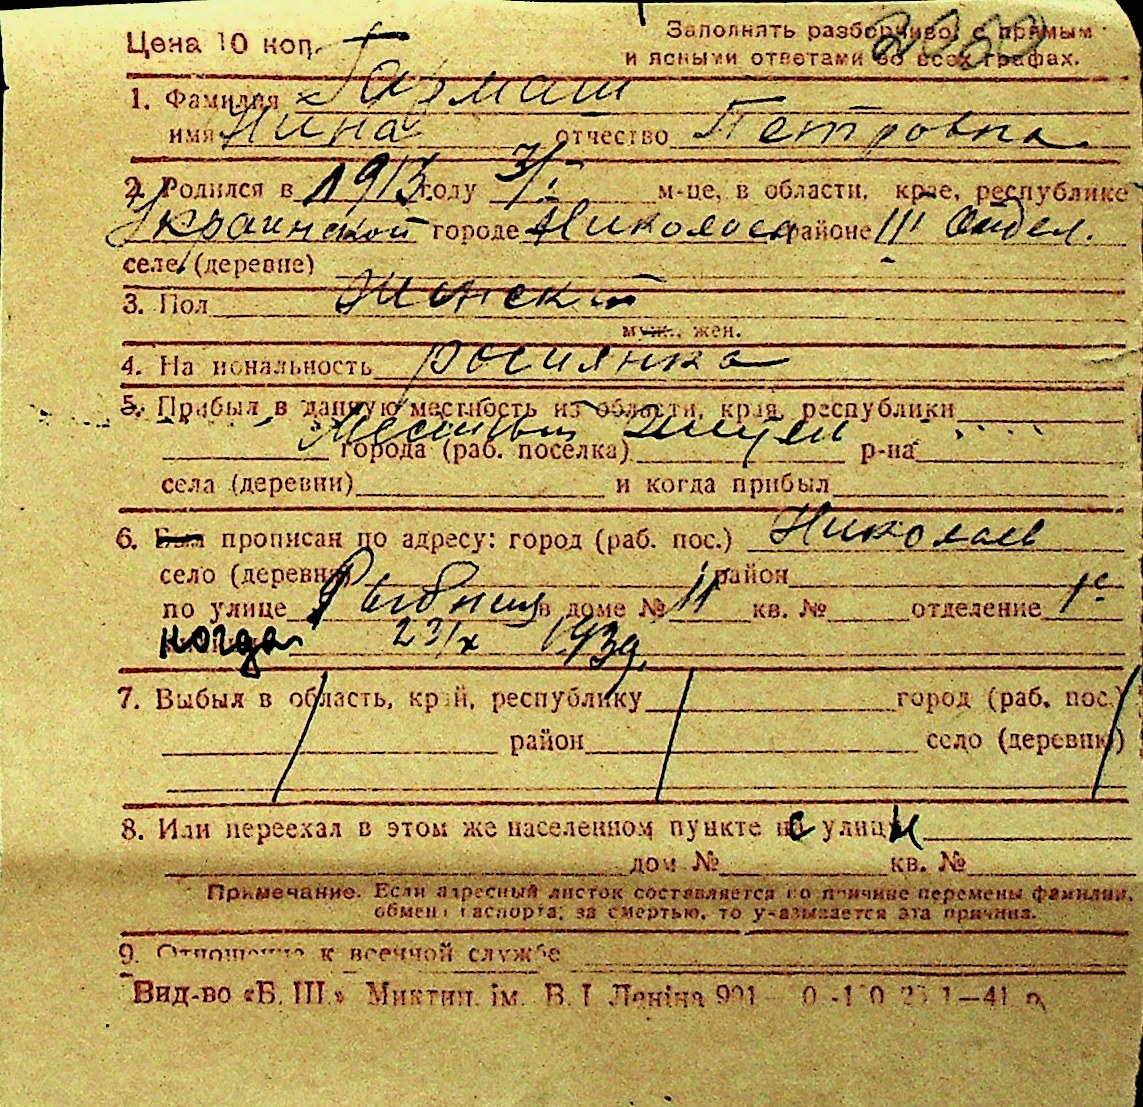 Цена 10 коп.
Заполнять разборчиво, с прямым
и ясными ответами во всех графах.
1. Фамилия Гармаш
имя Нина отчество Петровна
2. Родился в 1913 году 3/I м-це, в области, крае, республике
Украинской городе Николаев районе III Отдел.
селе (деревне)
3. Пол Женский
муж., жен.
4. Национальность россиянка
5. Прибыл в данную местность из области, края, республики
Местный
города (раб. поселка) р-на
села (деревни) и когда прибыл
6. Был прописан по адресу: город (раб. пос.) Николаев
село (деревня) район
по улице Рыбная в доме № 11 кв. № отделение 1е
когда 23/x 1939.
7. Выбыл в область, край, республику город (раб. пос.)
район село (деревню)
8. Или переехал в этом же населенном пункте с улицы
дом № кв. №
Примечание. Если адресный листок составляется по причине перемены фамилии,
обмена паспорта, за смертью, то указывается эта причина.
9. Отношение к военной службе
Вид-во «Б. Ш.» Миктип. ім. В. І. Леніна